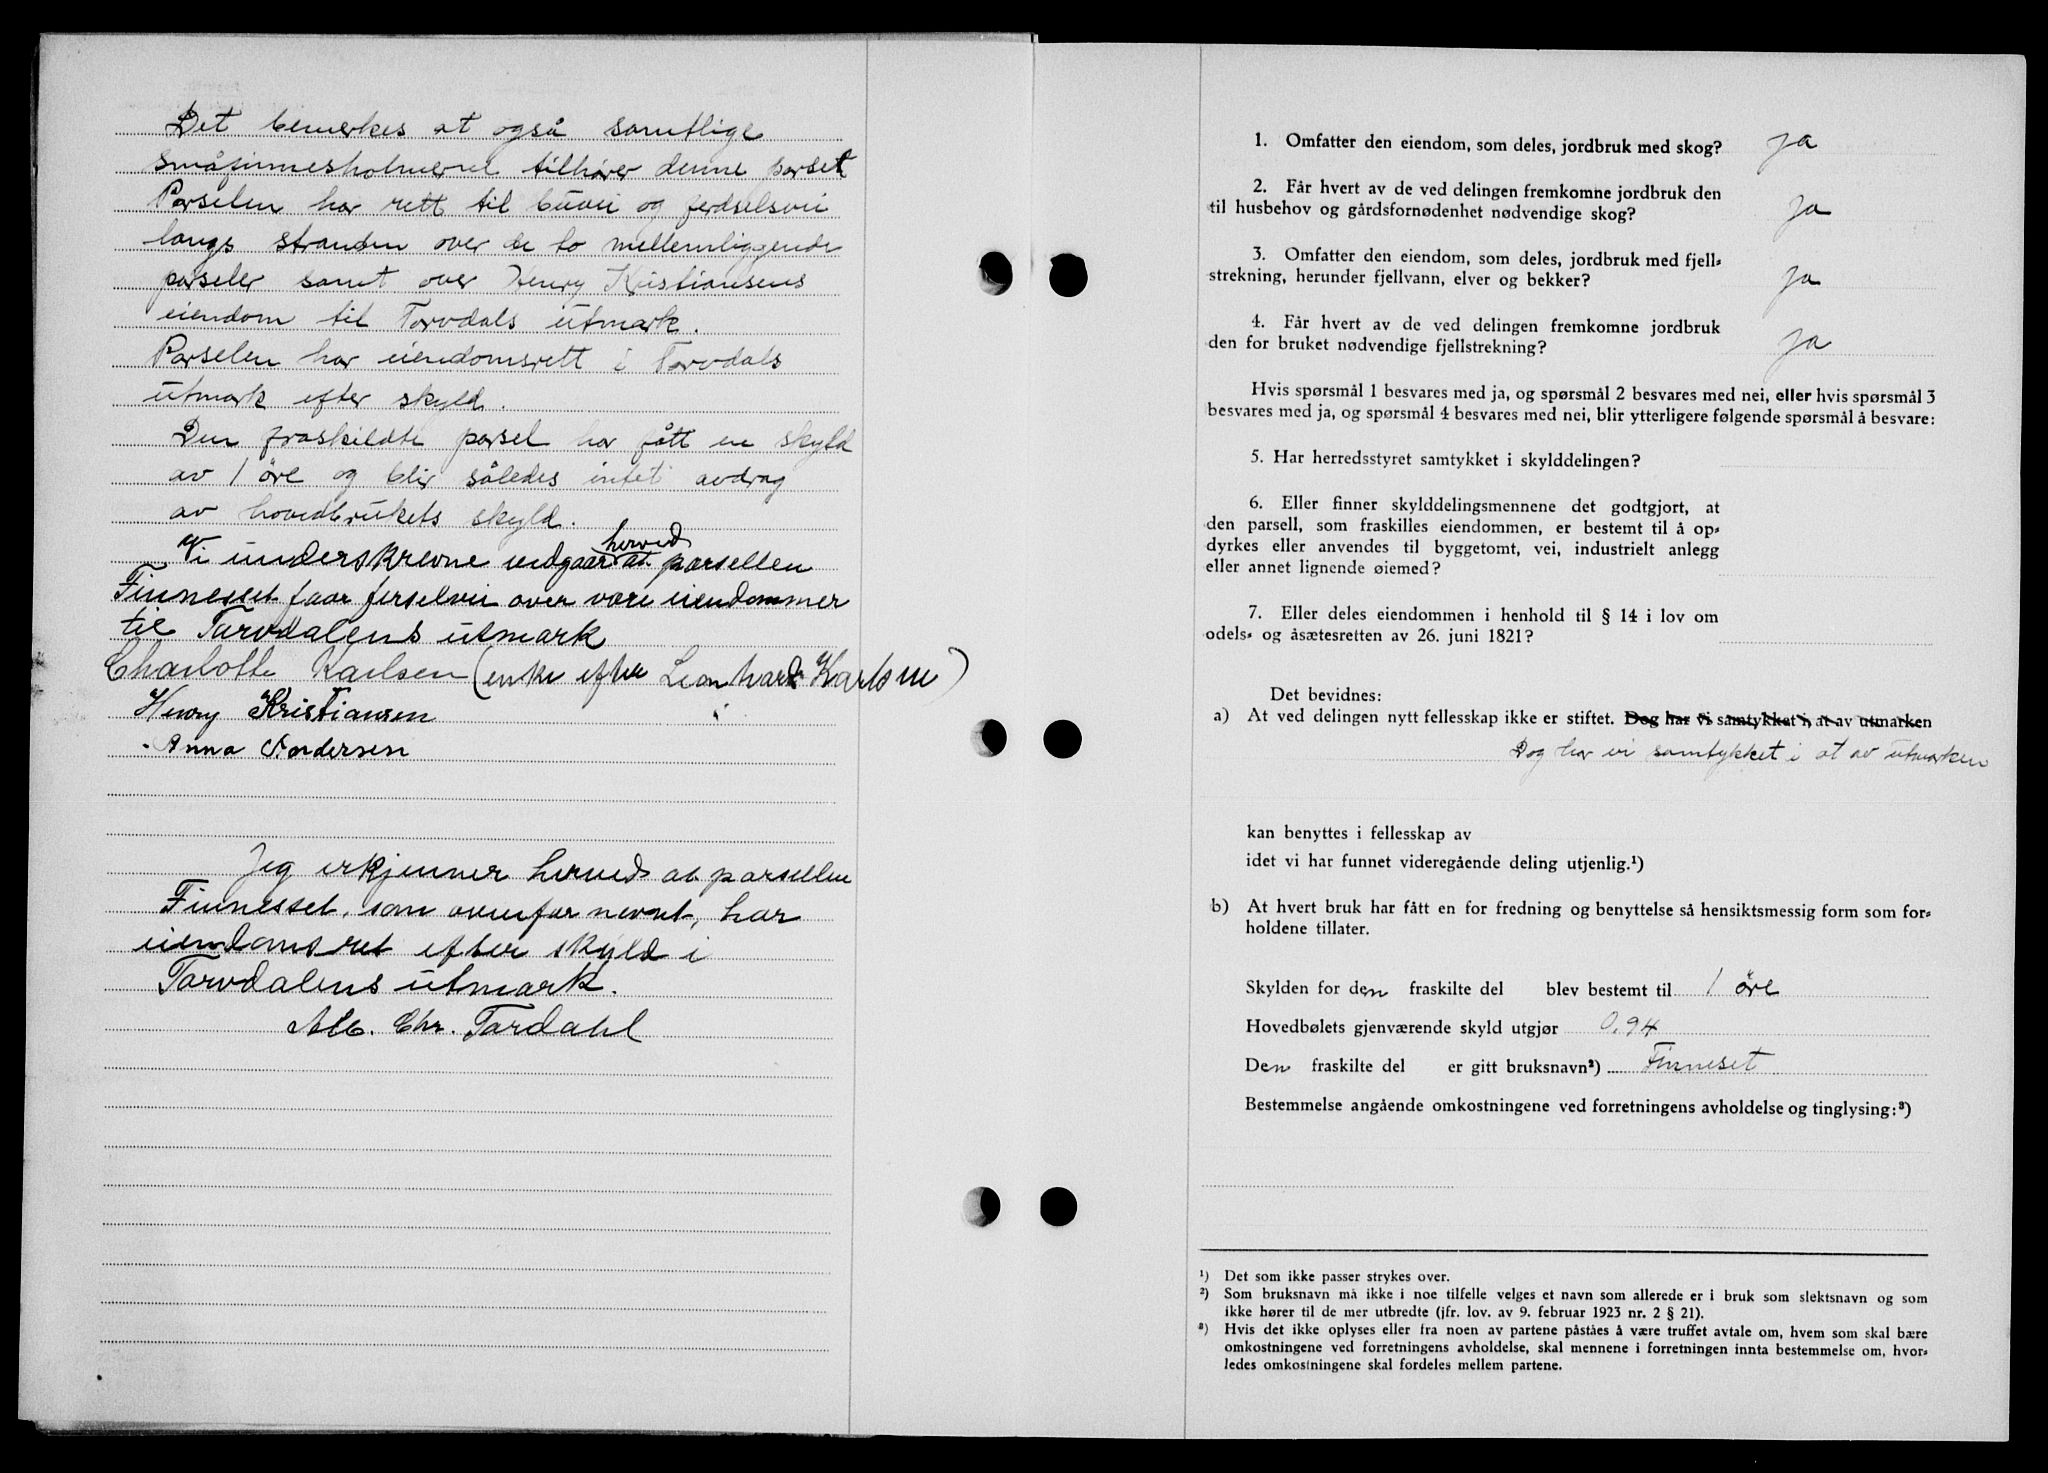 Det bemerkes at også samtlige
småfinnesholmerne tilhører denne parsel
Parselen har rett til buvei og ferdselsvei
langs stranden over de to mellemliggende
parseler samt over Henry Kristiansens
eiendom til Torvdals utmark.
Parselen har eiendomsrett i Torvdals
utmark efter skyld.
Den fraskildte parsel har fått en skyld
av 1 øre og blir således intet avdrag
av hovedbrukets skyld.
Vi underskrevne vedgaar herved at parsellen
Finnesset faar ferselvei over vore eiendommer
til Tarvdalens utmark
Charlotte Karlsen (enke efter Leonhard Karlsen)
Henry Kristiansen
Anna Andersen
Jeg erkjenner herved at parsellen
Finnesset, som ovenfor nevnt, har
eiendomsret efter skyld i
Tarvdalens utmark.
Chr. Tardahl
1. Omfatter den eiendom, som deles, jordbruk med skog? ja
2. Får hvert av de ved delingen fremkomne jordbruk den
til husbehov og gårdsfornødenhet nødvendige skog? ja
3. Omfatter den eiendom, som deles, jordbruk med fjell-
strekning, herunder fjellvann, elver og bekker? ja
4. Får hvert av de ved delingen fremkomne jordbruk
den for bruket nødvendige fjellstrekning? ja
Hvis spørsmål 1 besvares med ja, og spørsmål 2 besvares med nei, eller hvis spørsmål 3
besvares med ja, og spørsmål 4 besvares med nei, blir ytterligere følgende spørsmål å besvare:
5. Har herredsstyret samtykket i skylddelingen?
6. Eller finner skylddelingsmennene det godtgjort, at
den parsell, som fraskilles eiendommen, er bestemt til å op-
dyrkes eller anvendes til byggetomt, vei, industrielt anlegg
eller annet lignende øiemed?
7. Eller deles eiendommen i henhold til § 14 i lov om
odels- og åsætesretten av 26. juni 1821?
Det bevidnes:
a) At ved delingen nytt fellesskap ikke er stiftet. Dog har vi samtykket i, at av utmarken
Dog har vi samtykket i at av utmarken
kan benyttes i fellesskap av
idet vi har funnet videregående deling utjenlig.¹)
b) At hvert bruk har fått en for fredning og benyttelse så hensiktsmessig form som for-
holdene tillater.
Skylden for den fraskilte del blev bestemt til 1 øre
Hovedbølets gjenværende skyld utgjør 0,94
Den fraskilte del er gitt bruksnavn²) Finneset
Bestemmelse angående omkostningene ved forretningens avholdelse og tinglysing:³)
¹) Det som ikke passer strykes over.
²) Som bruksnavn må ikke i noe tilfelle velges et navn som allerede er i bruk som slektsnavn og som
ikke hører til de mer utbredte (jfr. lov. av 9. februar 1923 nr. 2 § 21).
³) Hvis det ikke oplyses eller fra noen av partene påståes å være truffet avtale om, hvem som skal bære
omkostningene ved forretningens avholdelse, skal mennene i forretningen innta bestemmelse om, hvor-
ledes omkostningene skal fordeles mellem partene.